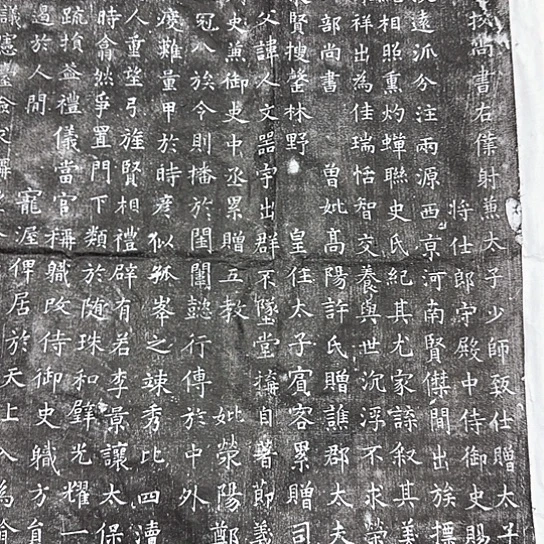 挍尚書右僕射兼太子少師致仕贈太子
將仕郎守殿中侍御史賜
遠派分注兩源西京河南賢傑間出族摽
相照熏灼蟬聯史氏紀其尤家諜叙其美
祥出為佳瑞恬智交養與世沉浮不求榮
部尚書 曾妣高陽許氏贈譙郡太夫
賢搜罄林野 皇任太子賓客累贈司
父諱人文器宇出群不墜堂搆自著節義
史兼御史中丞累贈 妣滎陽鄭
冠八族令則播於閨闈懿行傳於中外
難量甲於時彥似孤峯之竦秀比四瀆
人重望弓旌賢相禮辟有若李景讓太保
時翕然爭置門下類於随珠和璧光耀一
疏損益禮儀當官稱職改侍御史職方員
過於人間 寵渥俾居於天上入為
議憲臺僉求